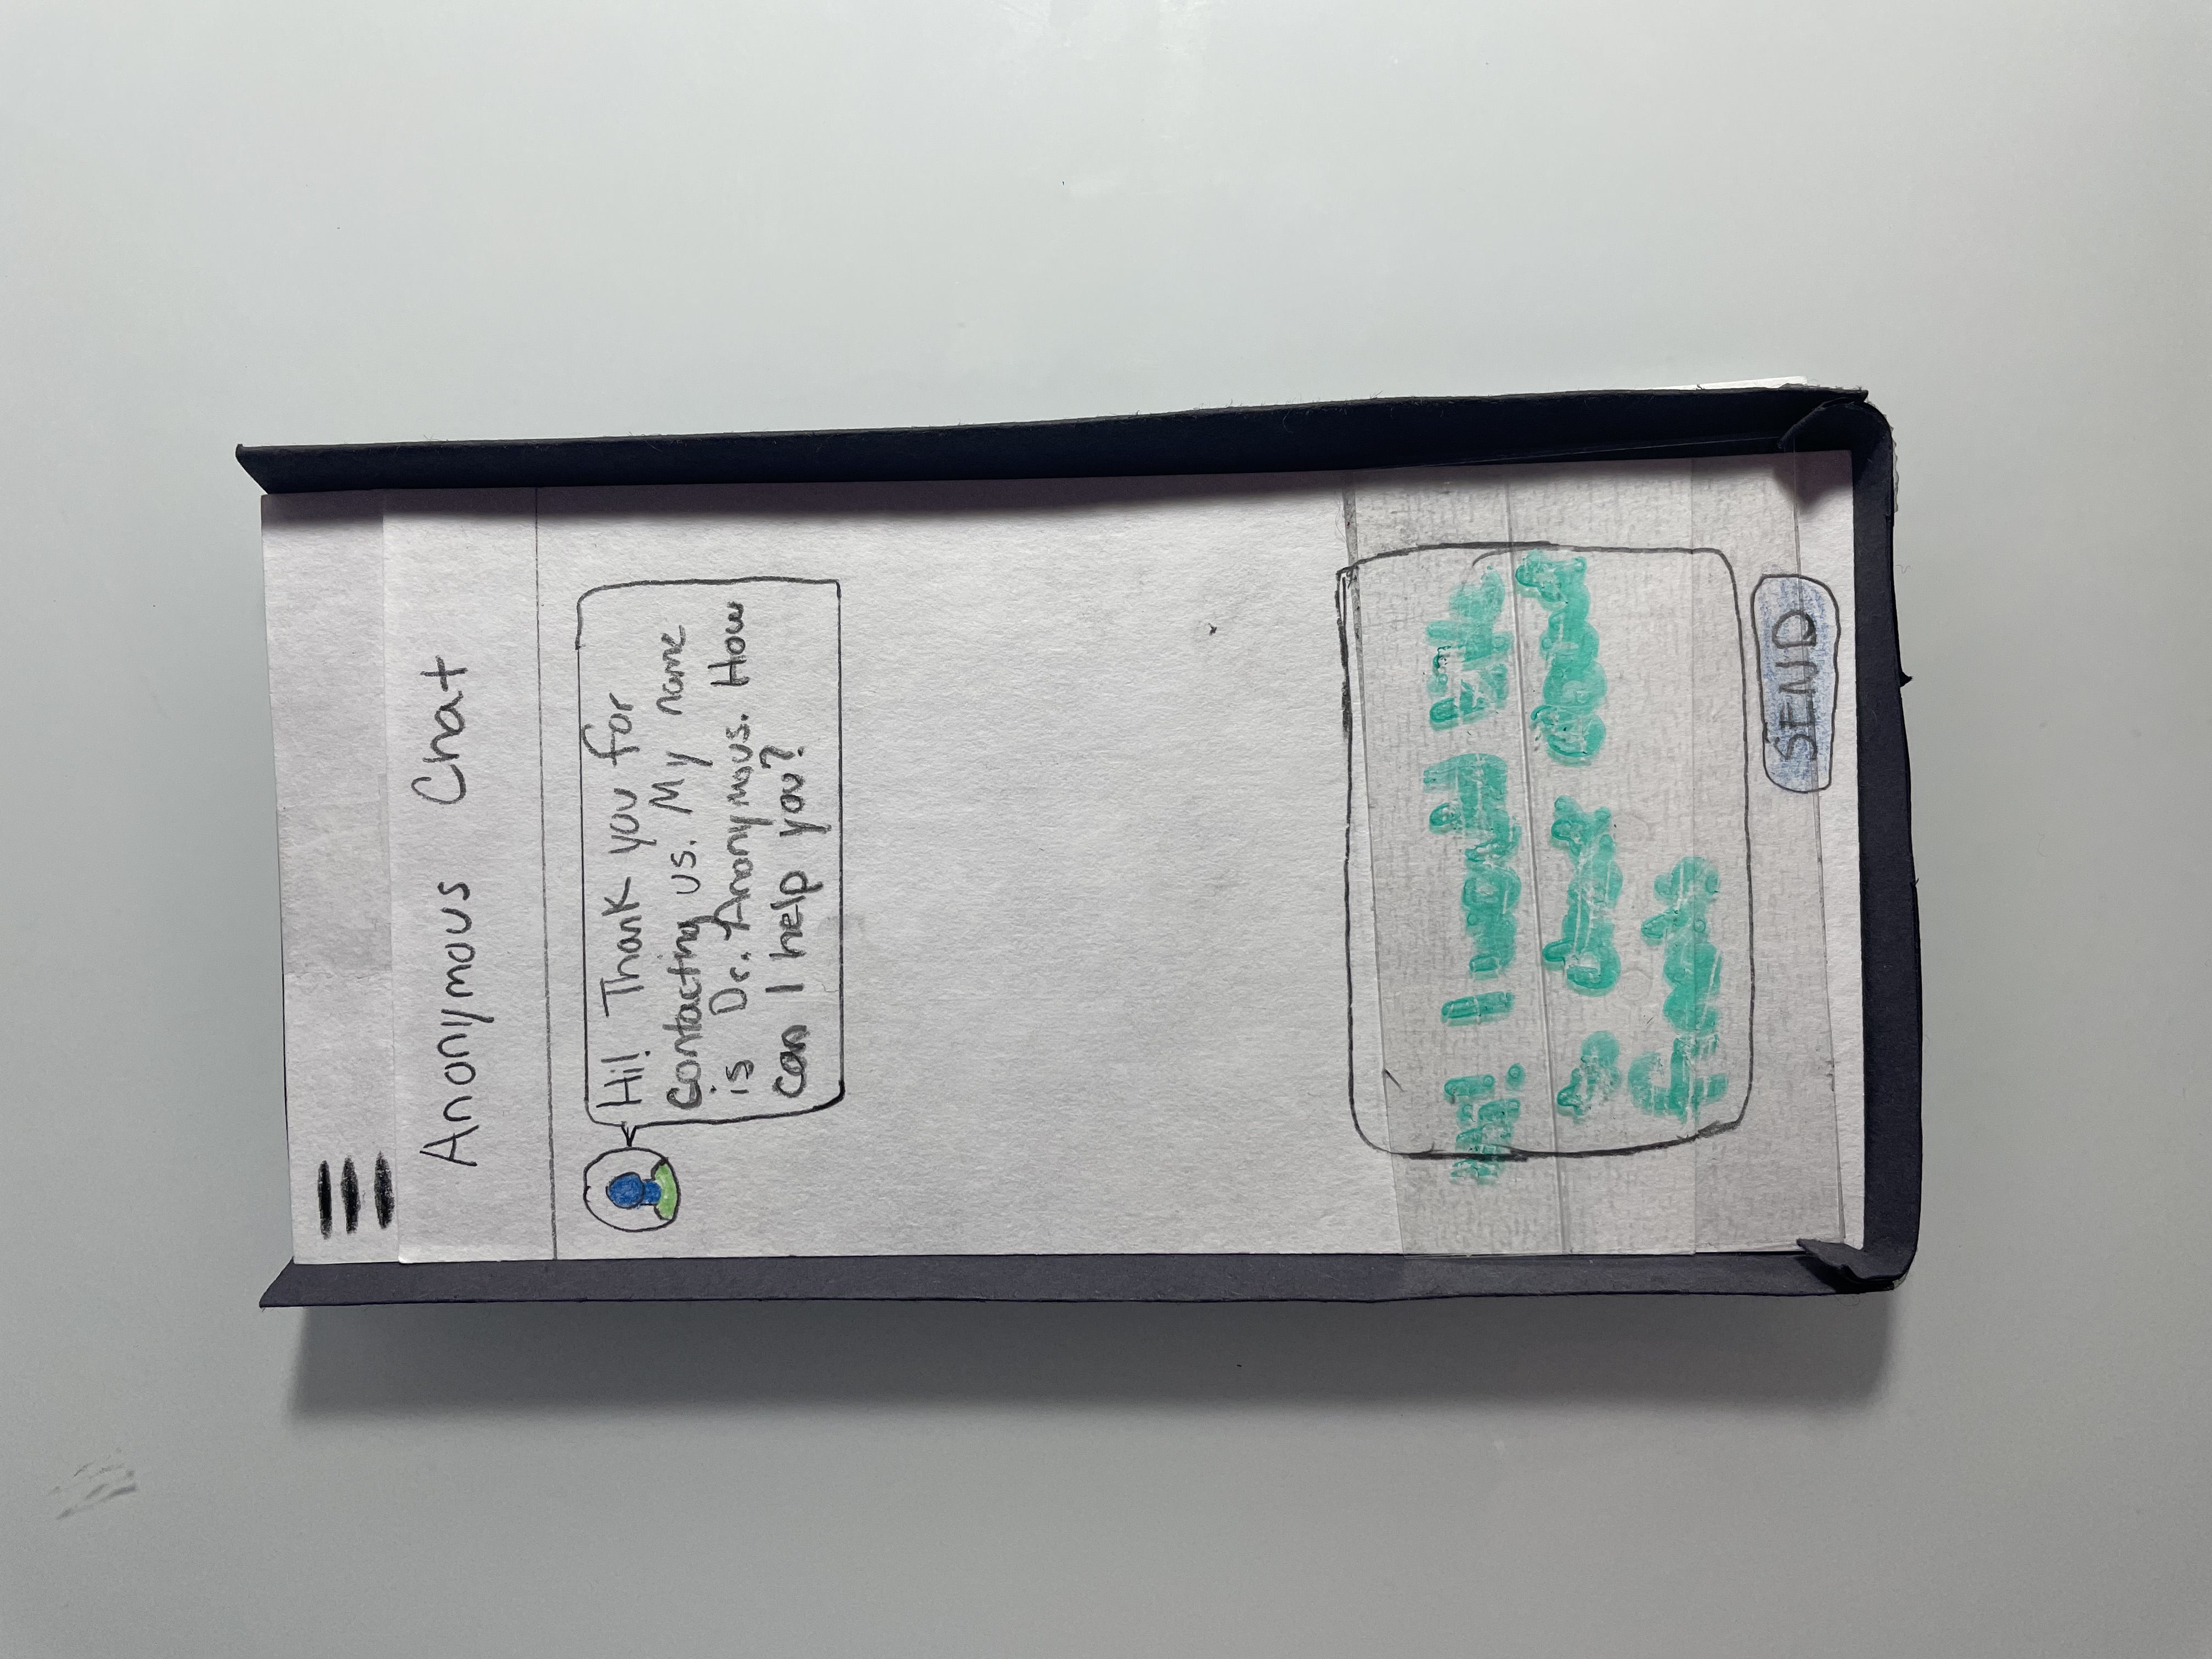 Anonymous Chat
Hi! Thank you for
contacting us. My name
is Dr. Anonymous. How
can I help you?
Hi! I would like
to
SEND